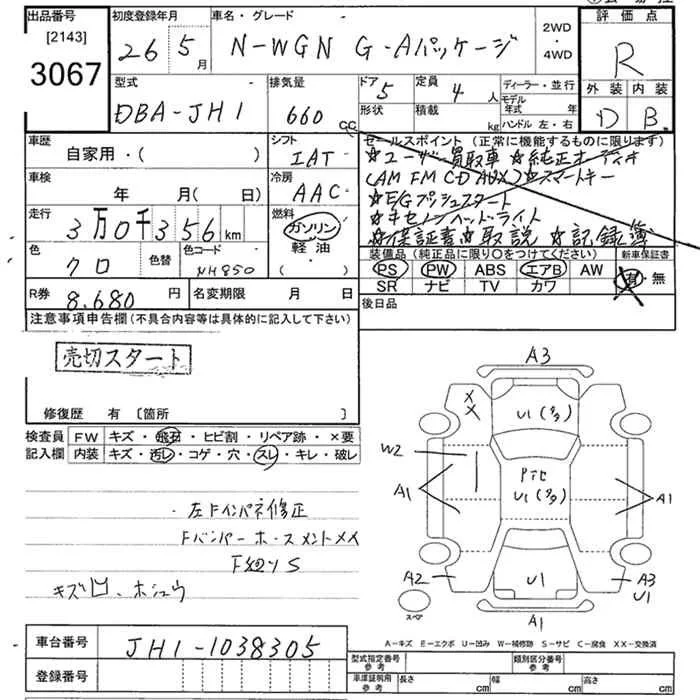 出品番号
[2143]
3067
初度登録年月
26 5月
車名・グレード
N-WGN G-Aパッケージ
2WD
・
4WD
評価点
R
外装 内装
D B
型式
DBA-JH1
排気量
660 cc
ドア 5
形状
定員 4 人
積載 kg
ディーラー・並行
モデル年式 年
ハンドル 左・右
車歴
自家用・( )
シフト
IAT
車検
年 月( 日)
冷房
AAC
走行
3万0千356km
燃料
ガソリン
軽油
・
( )
色
クロ
色替
色コード
NH850
R券
8.680円
名変期限 月 日
セールスポイント(正常に機能するものに限ります)
☆ユーザー買取車 ☆純正オーディオ
(AM FM CD AUX) ☆スマートキー
☆E/Gプッシュスタート
☆キセノンヘッドライト
☆保証書 ☆取説 ☆記録簿
装備品(純正品に限り○をつけてください)
新車保証書
PS PW ABS エアB AW
SR ナビ TV カワ
有・無
後日品
注意事項申告欄(不具合内容等は具体的に記入して下さい)
売切スタート
修復歴 有 [箇所 ]
検査員記入欄
FW キズ・飛石・ヒビ割・リペア跡・×要
内装 キズ・汚レ・コゲ・穴・スレ・キレ・破レ
・左Fインパネ修正
Fバンパーホースメントメメ
F廻りS
キズ凹、ホシュウ
A3
XX
U1(多)
W2
PTC
U1(多)
A1
A1
A2
U1
A3
U1
スペア
A1
車台番号 JH1-1038305
登録番号
A-キズ E-エクボ U-凹み W-補修跡 S-サビ C-腐食 XX-交換済
型式指定番号
参考
類別区分番号
参考
車庫証明用
参考
長さ cm 幅 cm 高さ cm